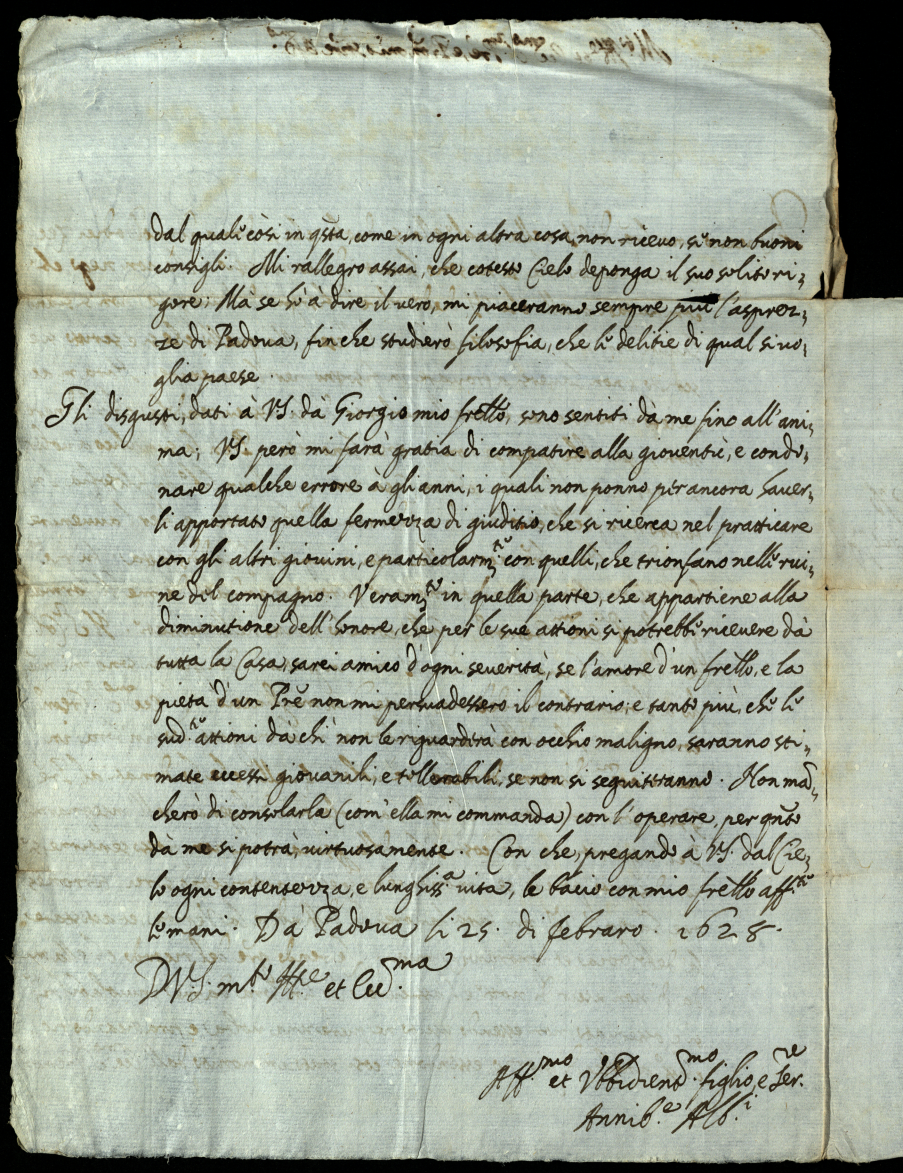 dal quale così in qsta, come in ogni altra cosa, non ricevo, se non buoni
consigli. Mi rallegro assai, che cotesto Cielo deponga il suo solito ri-
gore; Ma se hò à dire il vero, mi piaceranno sempre più l'asprez-
ze di Padova, finche studierò filosofia, che le delitie di qual si vo-
glia paese.
Gli disgusti, dati à VS. dà Giorgio mio frello, sono sentiti dà me fino all'ani-
ma; VS però mi farà gratia di compatire alla gioventù, e condo-
nare qualche errore à gli anni, i quali non ponno per ancora haver-
li apportato quella fermezza di giuditio, che si ricerca nel pratticare
con gli altri giovini, e particolarmte con quelli, che trionfano nelle rui-
ne del compagno. Veramte in quella parte, che appartiene alla
diminutione dell'honore, che per le sue attioni si potrebbe ricevere dà
tutta la Casa, sarei amico d'ogni severità, se l'amore d'un frello, e la
pietà d'un Pre non mi persuadessero il contrario; e tanto più, che le
sudte attioni dà chi non le riguarderà con occhio maligno, saranno sti-
mate eccessi giovanili, e tollerabili, se non si seguiteranno. Non man-
cherò di consolarla (com'ella mi commanda) con l'operare, per qnto
dà me si potrà, virtuosamente. Con che, pregando à VS. dal Cie-
lo ogni contentezza, e lunghissa vita, le bacio con mio frello affte
le mani. Dà Padova li 25. di febraro. 1628.
D VS. mto Ille et Ecc.ma
Aff.mo et Vbbidient.mo figlio, e Ser.re
Annib.e Alb.i